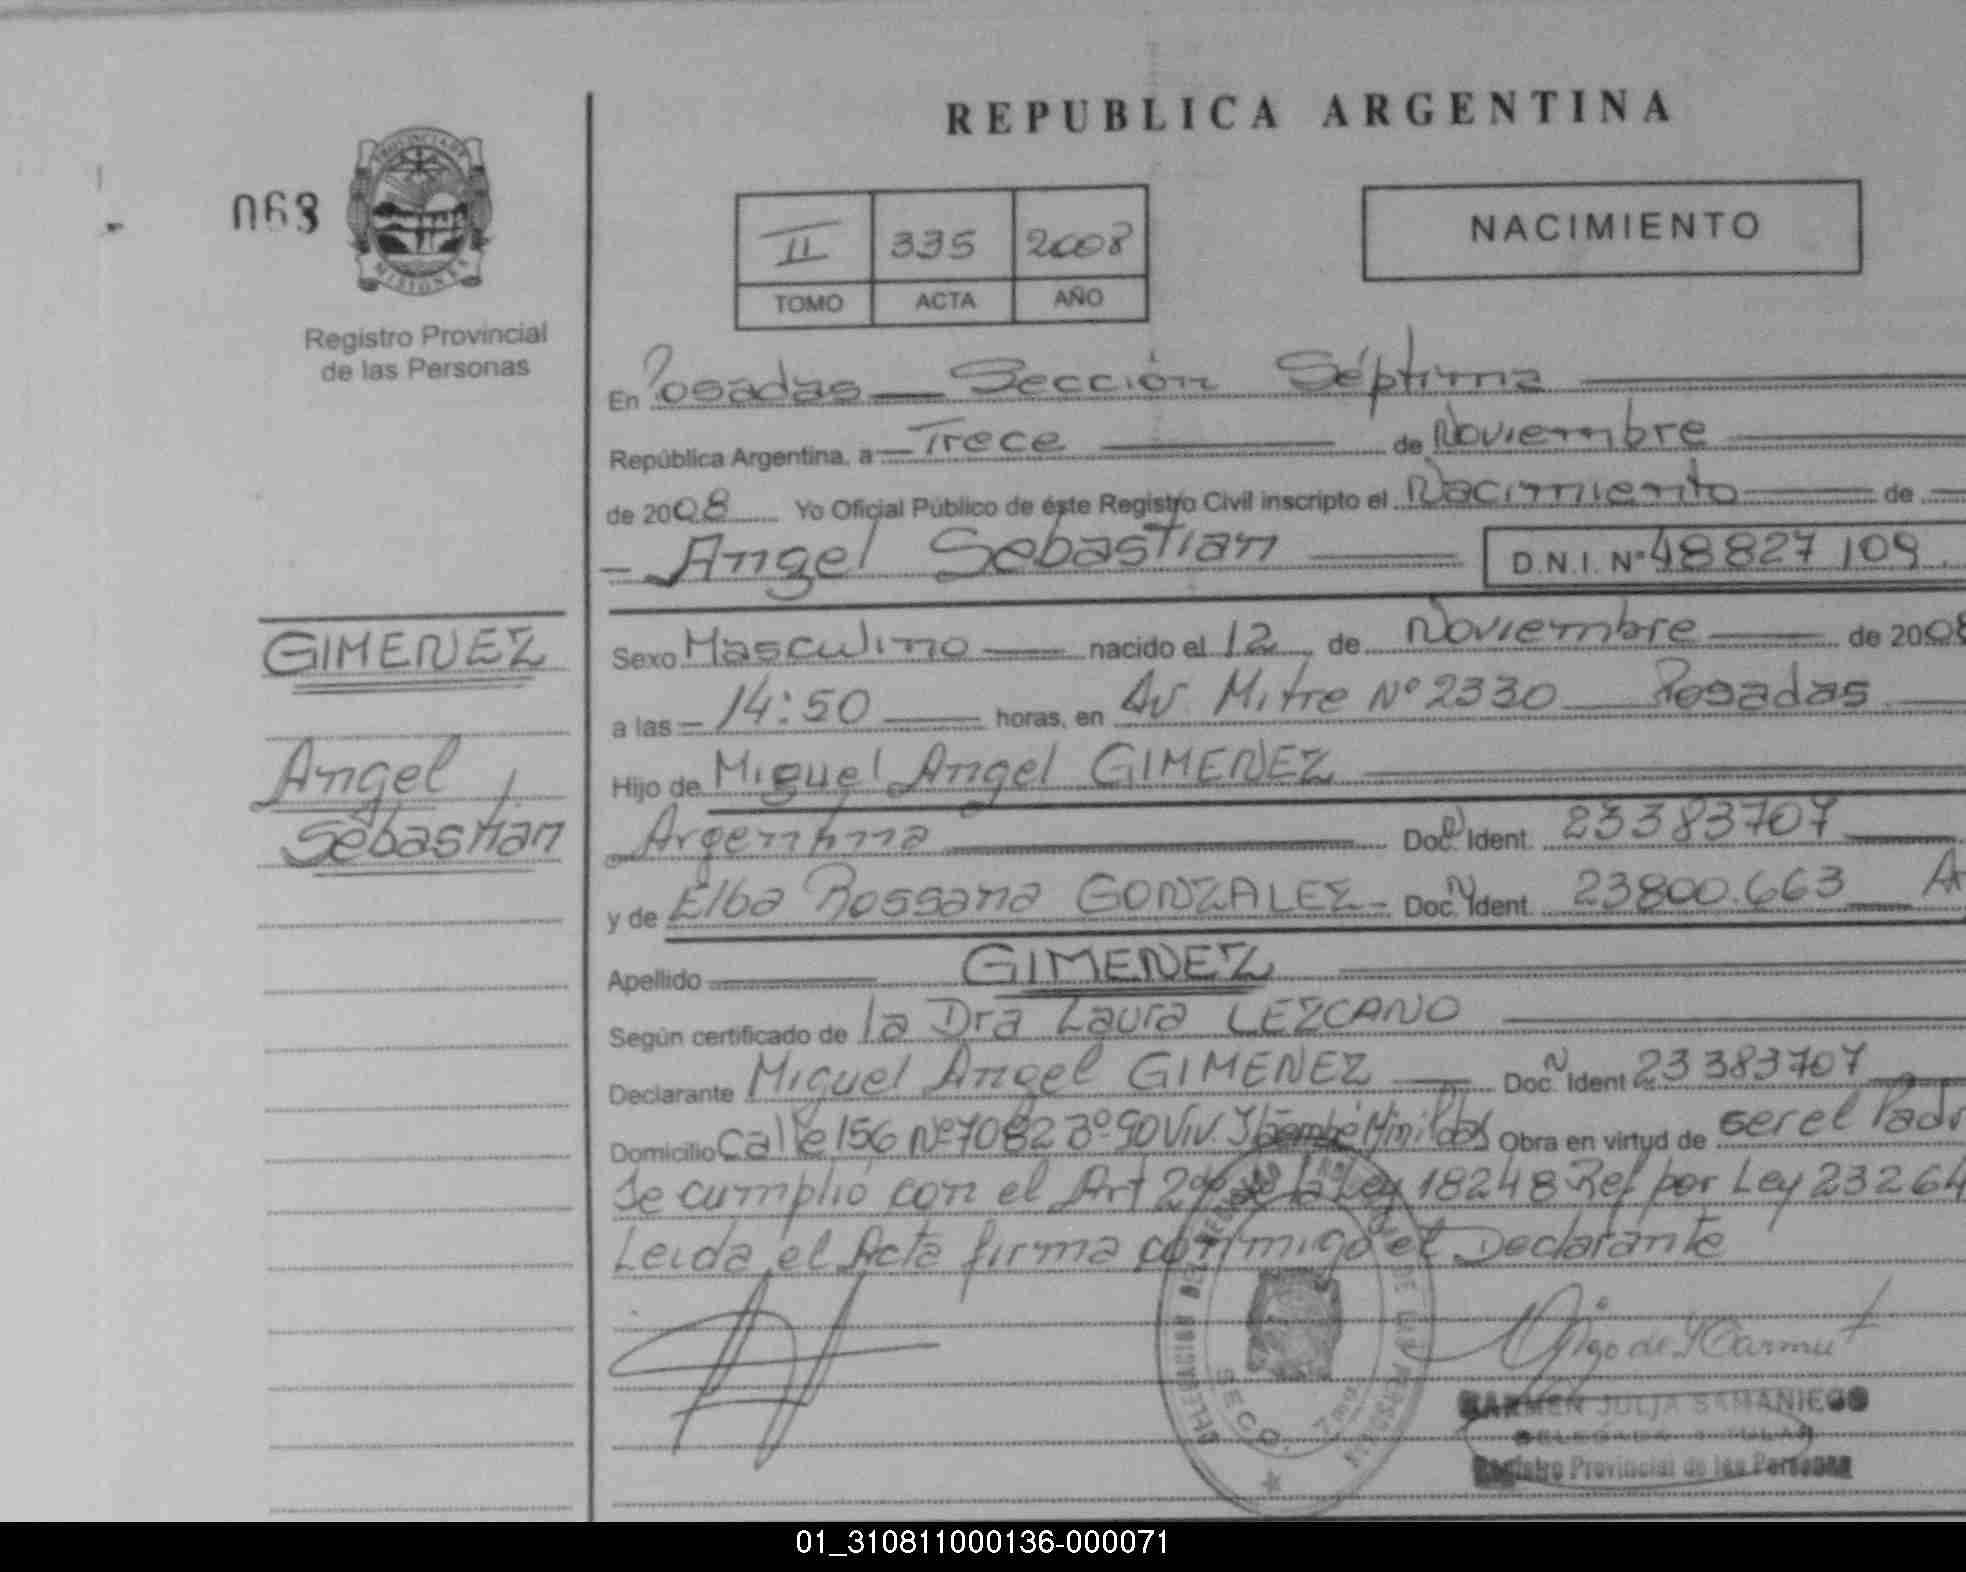 REPUBLICA ARGENTINA
068
PROVINCIA DE
MISIONES
Registro Provincial
de las Personas
II 335 2008
TOMO ACTA AÑO
NACIMIENTO
En Posadas — Sección Séptima
República Argentina, a — Trece de Noviembre
de 2008 Yo Oficial Público de éste Registro Civil inscripto el Nacimiento de
— Angel Sebastian D.N.I. Nº 48827109
GIMENEZ
Angel
Sebastian
Sexo Masculino nacido el 12 de Noviembre de 2008
a las — 14:50 horas, en Av. Mitre Nº 2330 Posadas
Hijo de Miguel Angel GIMENEZ
Argentina Doc. Ident. 23383707
y de Elba Rossana GONZALEZ - Doc. Ident. 23800.663 A
Apellido GIMENEZ
Según certificado de la Dra Laura LEZCANO
Declarante Miguel Angel GIMENEZ Doc. Ident 23383707
Domicilio Calle 156 Nº 7082 Bº 90 Viv. Obra en virtud de ser el Padr
Se cumplio con el Art 2do de la Ley 18248 Ref por Ley 23264
Leida el Acta firma conmigo el Declarante
SECC. 7ma
CARMEN JULIA SAMANIEGO
DELEGADA TITULAR
Registro Provincial de las Personas
01_310811000136-000071